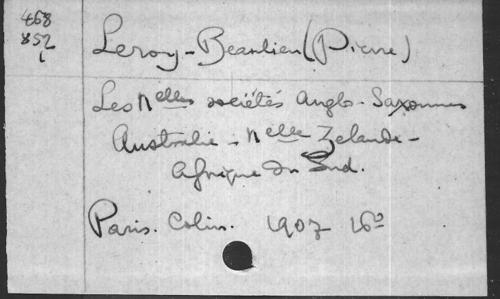 468
852
L
Leroy-Beaulieu (Pierre)
Les Nelles sociétés Anglo-Saxonnes
Australie - Nelle Zelande -
Afrique du Sud.
Paris. Colin. 1907 16°